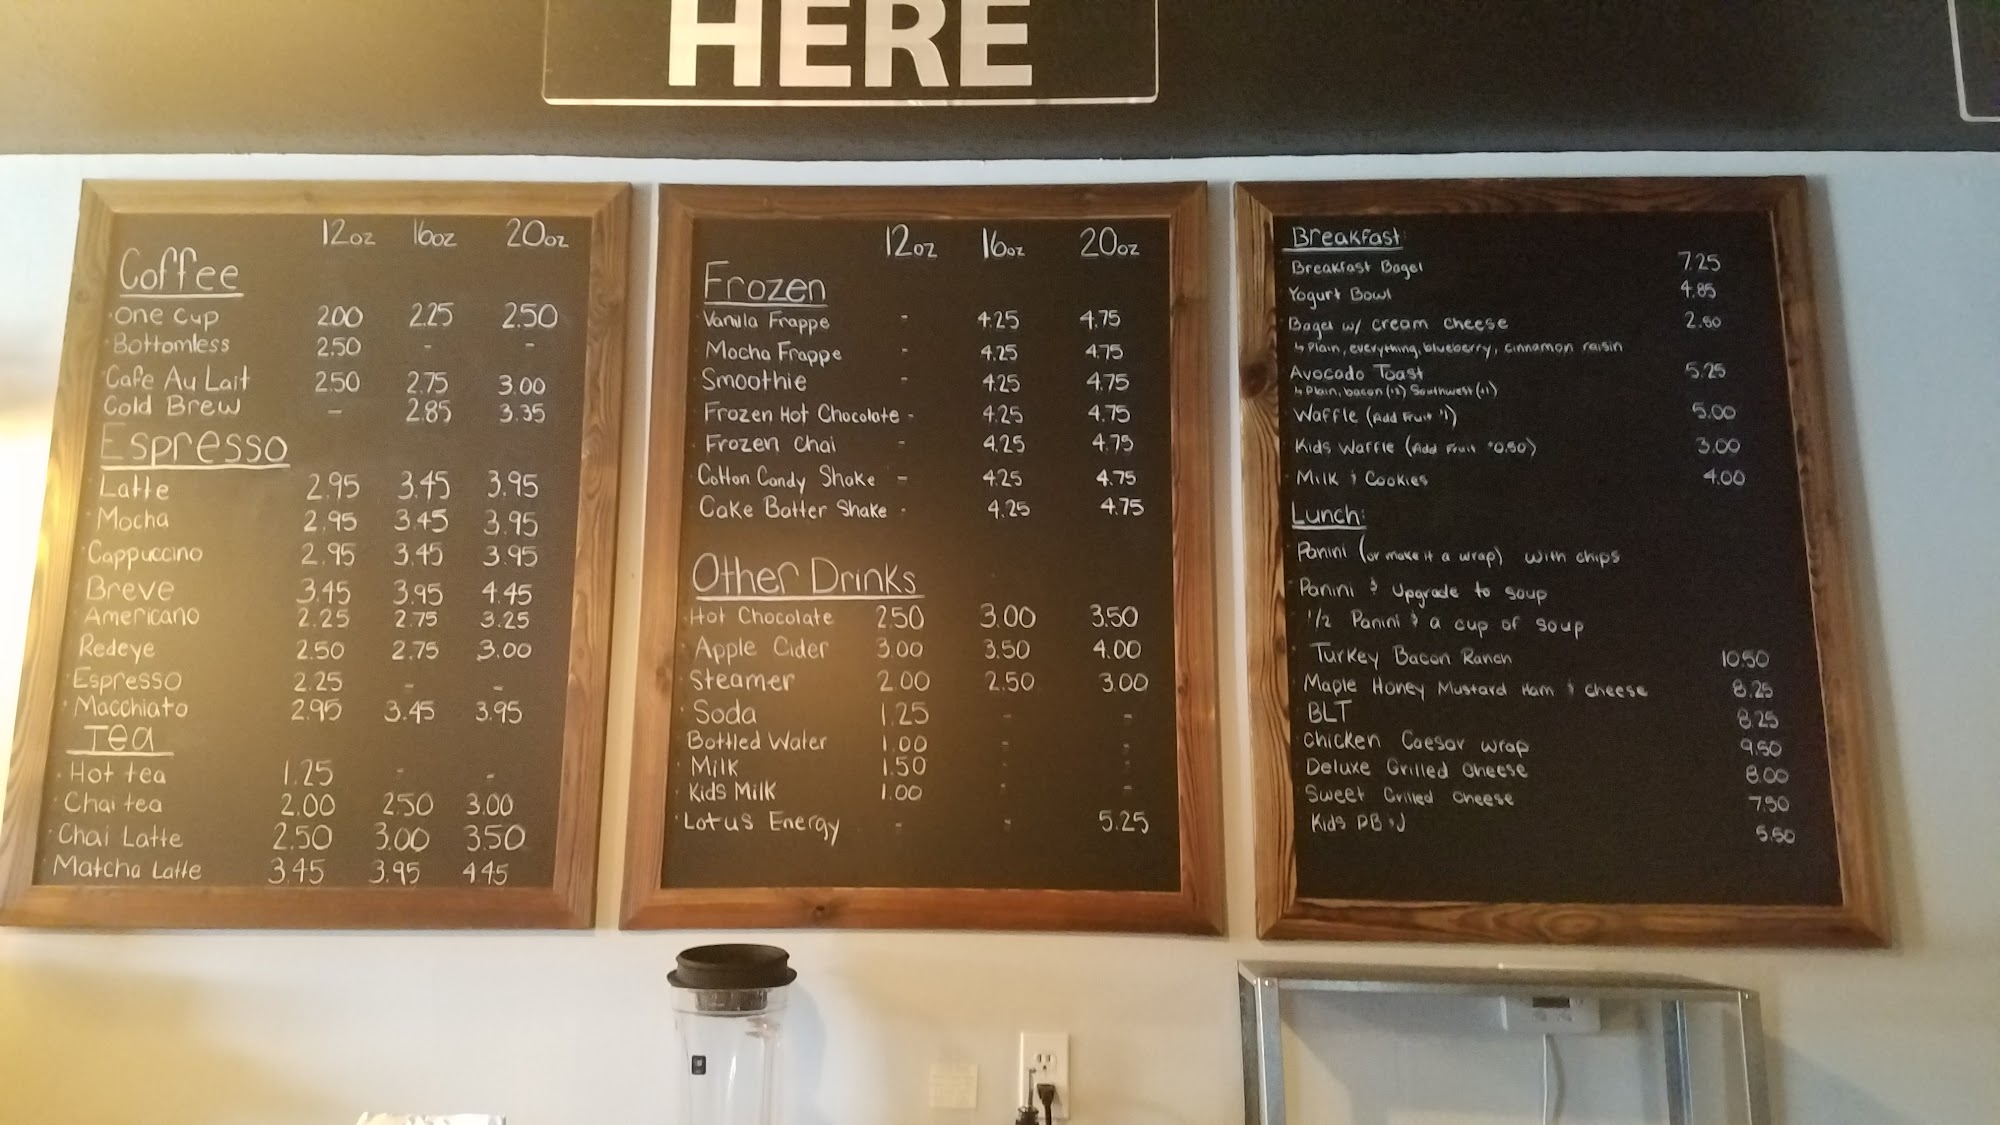 HERE
12oz 16oz 20oz
Coffee
One Cup 2.00 2.25 2.50
Bottomless 2.50 - -
Cafe Au Lait 2.50 2.75 3.00
Cold Brew - 2.85 3.35
Espresso
Latte 2.95 3.45 3.95
Mocha 2.95 3.45 3.95
Cappuccino 2.95 3.45 3.95
Breve 3.45 3.95 4.45
Americano 2.25 2.75 3.25
Redeye 2.50 2.75 3.00
Espresso 2.25 - -
Macchiato 2.95 3.45 3.95
Tea
Hot tea 1.25 - -
Chai tea 2.00 2.50 3.00
Chai Latte 2.50 3.00 3.50
Matcha Latte 3.45 3.95 4.45
12oz 16oz 20oz
Frozen
Vanilla Frappe - 4.25 4.75
Mocha Frappe - 4.25 4.75
Smoothie - 4.25 4.75
Frozen Hot Chocolate - 4.25 4.75
Frozen Chai - 4.25 4.75
Cotton Candy Shake - 4.25 4.75
Cake Batter Shake - 4.25 4.75
Other Drinks
Hot Chocolate 2.50 3.00 3.50
Apple Cider 3.00 3.50 4.00
Steamer 2.00 2.50 3.00
Soda 1.25 - -
Bottled Water 1.00 - -
Milk 1.50 - -
Kids Milk 1.00 - -
Lotus Energy - - 5.25
Breakfast:
Breakfast Bagel 7.25
Yogurt Bowl 4.85
Bagel w/ cream cheese 2.50
↳ Plain, everything, blueberry, cinnamon raisin
Avocado Toast 5.25
↳ Plain, bacon Southwest (+1)
Waffle (Add Fruit $1) 5.00
Kids Waffle (Add Fruit $0.50) 3.00
Milk & Cookies 4.00
Lunch:
Panini (or make it a wrap) with chips
Panini & upgrade to soup
1/2 Panini & a cup of soup
Turkey Bacon Ranch 10.50
Maple Honey Mustard Ham & cheese 8.25
BLT 8.25
Chicken Caesar wrap 9.50
Deluxe Grilled Cheese 8.00
Sweet Grilled Cheese 7.50
Kids PB&J 5.50